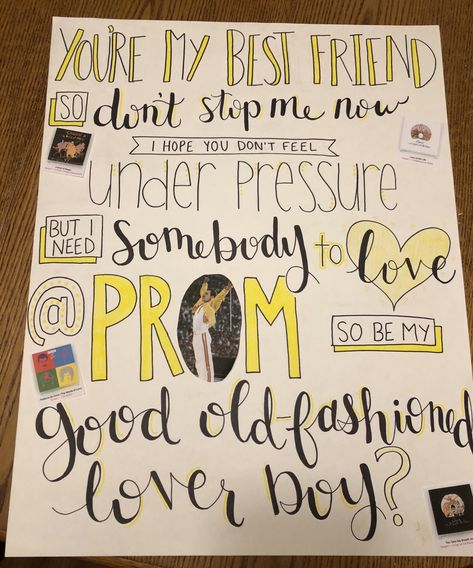 YOU'RE MY BEST FRIEND
SO don't stop me now
I HOPE YOU DON'T FEEL
under pressure
BUT I NEED somebody to love
@ PROM
SO BE MY
good old-fashioned
lover boy?